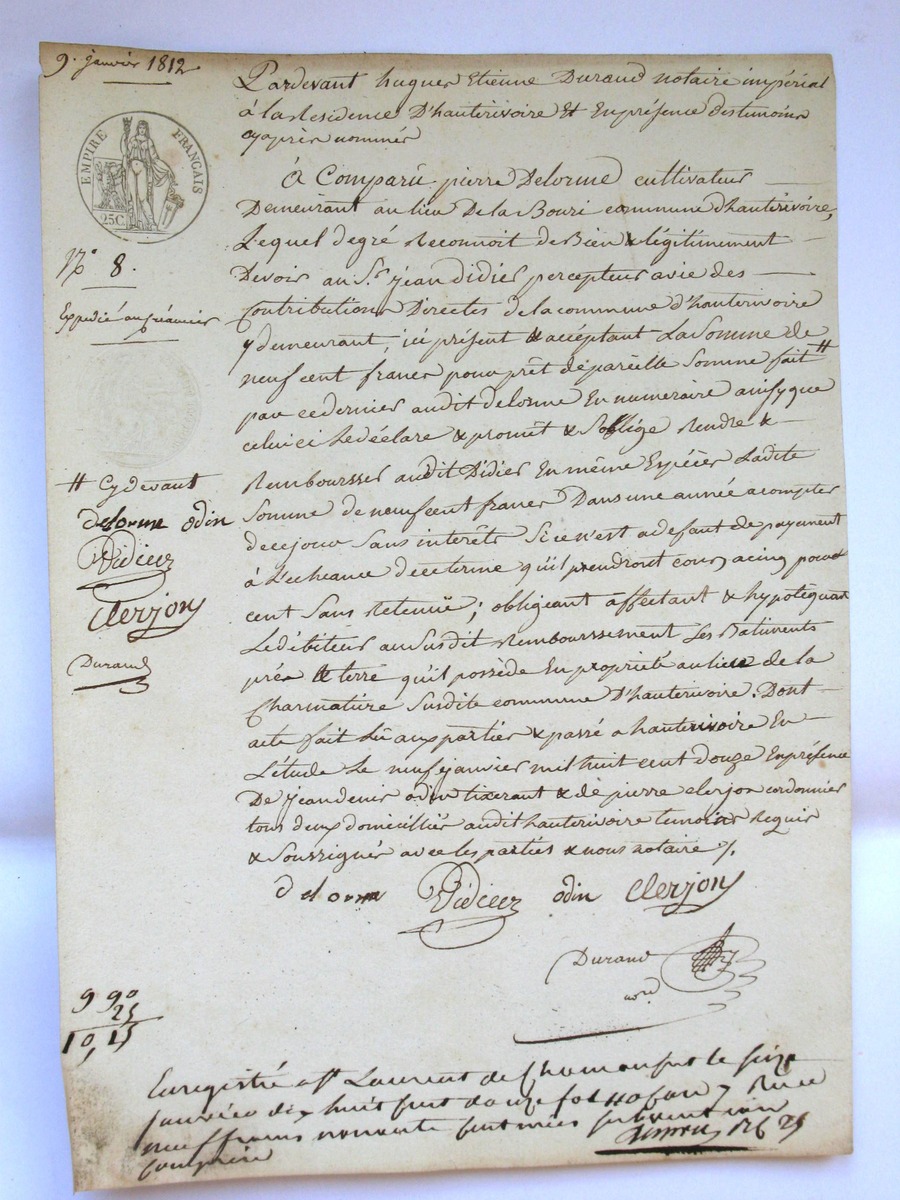 9. janvier 1812
EMPIRE FRANÇAIS
25C.
N.º 8.
Expedié au créancier
Pardevant hugues Etienne Durand notaire impérial
à la Residence D'hauterivoire Et En présence des temoins
cyaprès nommés
A Comparu pierre Delorme cultivateur
Demeurant au lieu De la Bouri commune d'hauterivoire,
Lequel de gré Reconnoit de Bien & légitimement
Devoir au Sr. jean didier percepteur avie des
Contributions Directes de la commune d'hauterivoire
y demeurant, ici présent & acceptant La Somme de
neuf cent francs pour prêt de pareille Somme fait #
par ce dernier audit delorme En numeraire ainsy que
celui ci Le déclare & promêt & S'oblige rendre &
Rembourser audit Didier En même Espéces Ladite
Somme de neuf cent francs Dans une année a compter
de ce jour Sans interêts Si ce n'est a defaut de payement
à L'echeance de ce terme qu'il prendront cours a cinq pour
cent Sans Retenüe; obligeant affectant & hypotéquant
Le débiteur au Susdit Remboursement Les Batiments
prés & terre qu'il possède En propriété au lieu de la
Charmatière Susdite commune D'hauterivoire. Dont
acte fait Lu aux parties & passé a hauterivoire En
L'étude Le neuf janvier mil huit cent douze En présence
De jean denis odin tixerant & de pierre clerjon cordonnier
tous deux domiciliés audit hauterivoire temoins Requis
& Soussignés avec les parties & nous notaire /.
# Cy devant
delorme odin
Didier
Clerjon
Durand
delorme Didier odin Clerjon
Durand
nore
9 90
25
10, 15
Enregistré a St Laurent de Chamousset le seize
janvier dix huit cent douze fol Reçu
neuf francs nonante centimes subvention
comprise